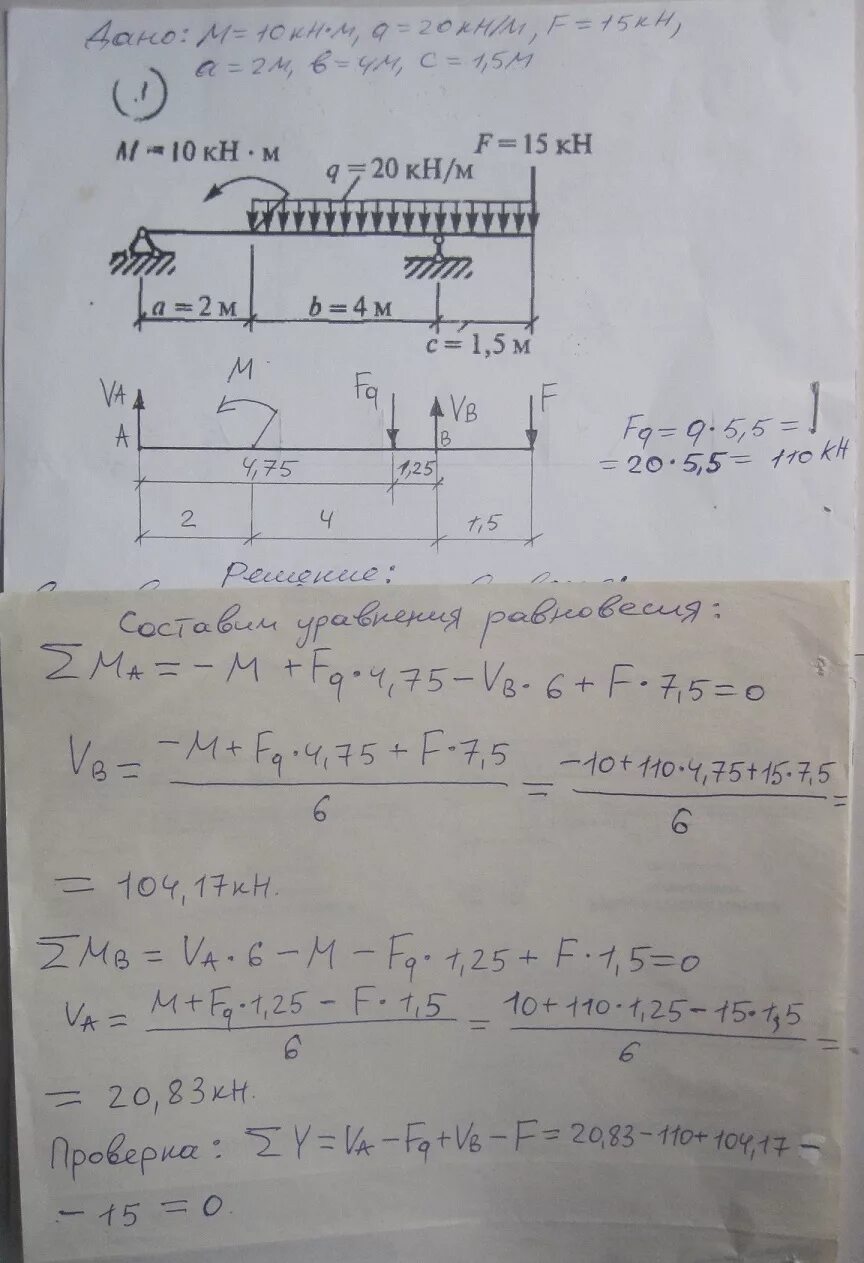 Дано: M = 10 кН·м, q = 20 кН/м, F = 15 кН,
a = 2 м, в = 4 м, c = 1,5 м
1
M = 10 кН · м
F = 15 кН
q = 20 кН/м
a = 2 м
b = 4 м
c = 1,5 м
VA
M
Fq
VB
F
A
B
4,75
1,25
2
4
1,5
Fq = q·5,5 =
= 20·5,5 = 110 кН
Решение:
Составим уравнения равновесия:
ΣMA = -M + Fq·4,75 - VB·6 + F·7,5 = 0
VB = (-M + Fq·4,75 + F·7,5)/6 = (-10+110·4,75+15·7,5)/6 =
= 104,17 кН.
ΣMB = VA·6 - M - Fq·1,25 + F·1,5 = 0
VA = (M + Fq·1,25 - F·1,5)/6 = (10+110·1,25-15·1,5)/6 =
= 20,83 кН.
Проверка: ΣY = VA - Fq + VB - F = 20,83 - 110 + 104,17 -
- 15 = 0.